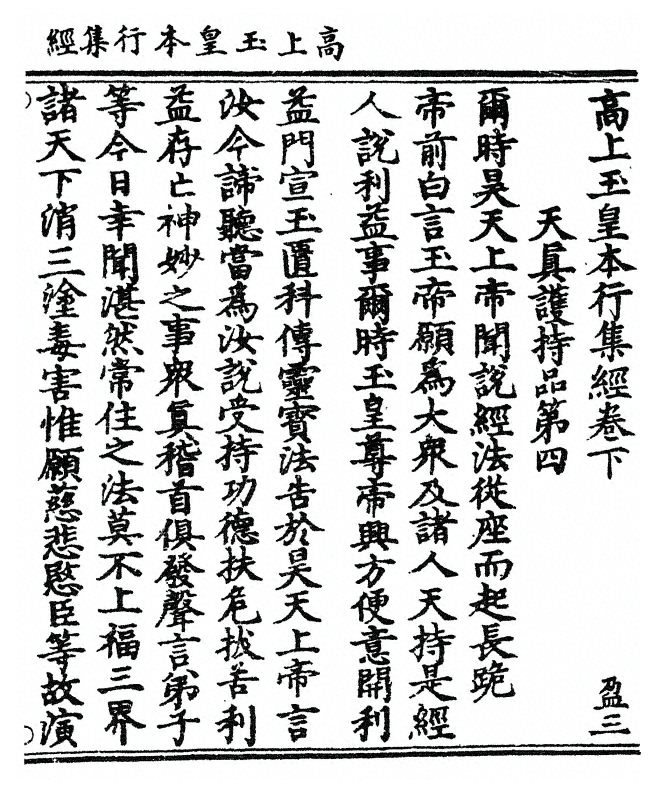 高上玉皇本行集經
高上玉皇本行集經卷下
盈三
天眞護持品第四
爾時昊天上帝聞說經法從座而起長跪
帝前白言玉帝願爲大衆及諸人天持是經
人說利益事爾時玉皇尊帝興方便意開利
益門宣玉匱科傳靈寶法告於昊天上帝言
汝今諦聽當爲汝說受持功德扶危拔苦利
益存亡神妙之事衆眞稽首俱發聲言弟子
等今日幸聞湛然常住之法莫不上福三界
諸天下消三塗毒害惟願慈悲愍臣等故演